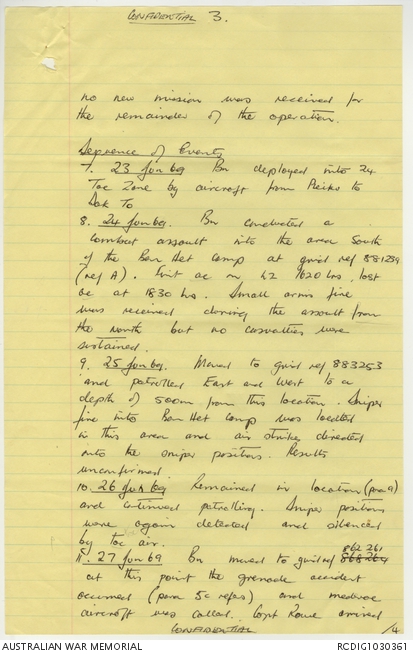 CONFIDENTIAL 3.
no new mission was received for
the remainder of the operation.
Sequence of Events
7. 23 Jun 69 Bn deployed into 24
Tac Zone by aircraft from Pleiku to
Dak To
8. 24 Jun 69. Bn conducted a
combat assault into the area South
of the Ben Het Camp at grid ref 881239
(ref A). First ac on LZ 1620 hrs, last
ac at 1830 hrs. Small arms fire
was received during the assault from
the north but no casualties were
sustained.
9. 25 Jun 69. Moved to grid ref 883253
and patrolled East and West to a
depth of 500m from this location. Sniper
fire into Ben Het Camp was located
in this area and air strikes directed
onto the sniper positions. Results
unconfirmed
10. 26 Jun 69 Remained in location (para 9)
and continued patrolling. Sniper positions
were again detected and silenced
by tac air.
11. 27 Jun 69 Bn moved to grid ref 862 261
at this point the grenade accident
occurred (para 5c refers) and medevac
aircraft was called. Capt Rowe arrived
CONFIDENTIAL /4
AUSTRALIAN WAR MEMORIAL RCDIG1030361